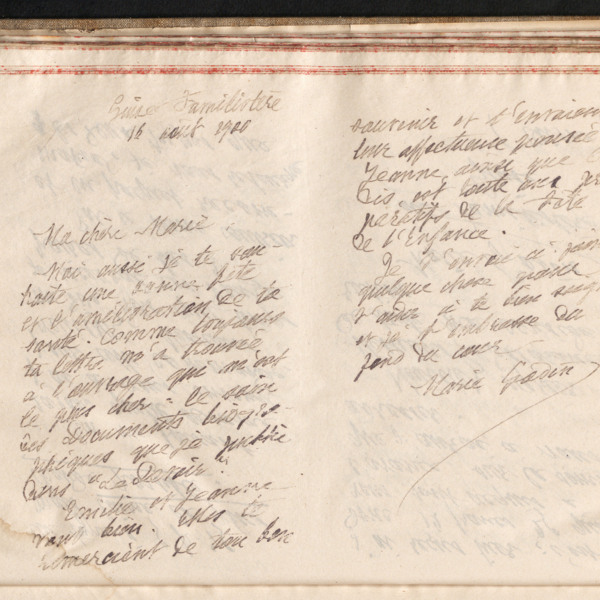 Guise Familistère
16 août 1900
Ma chère Marie
Moi aussi je te sou
haite une bonne fête
et l'amélioration de ta
santé. Comme toujours
ta lettre m'a trouvée
à l'ouvrage qui m'est
le plus cher : le soin
des Documents biogra-
phiques que je publie
dans "Le Devoir".
Emilie et Jeanne
vont bien. Elles te
remercient de ton bon
souvenir et t'envoient
leur affectueuse pensée
Jeanne, ainsi que
est toute aux pré
paratifs de la Fête
de l'Enfance.
Je t'envoie ci-joint
quelque chose pour
t'aider à te bien
et je t'embrasse du
fond du cœur
Marie Godin